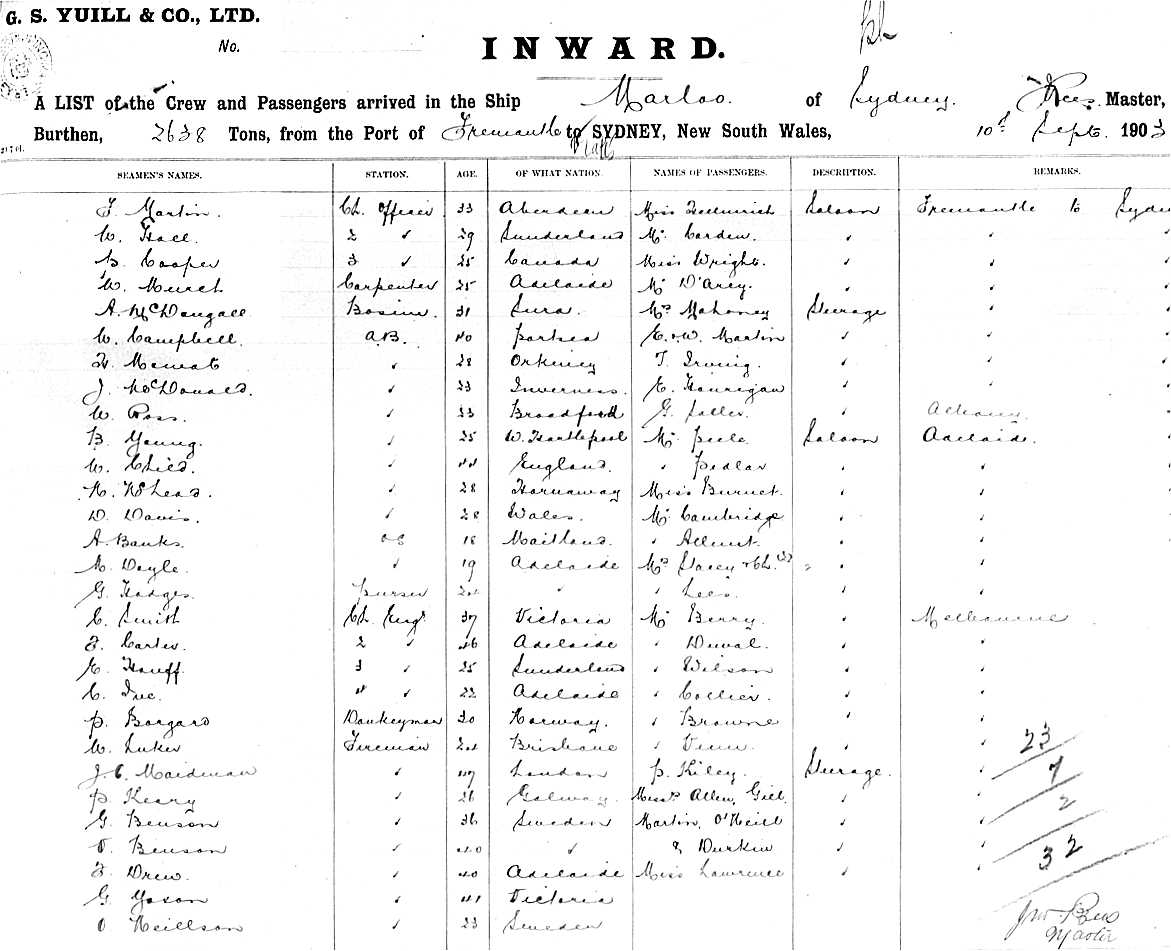 G. S. YUILL & CO., LTD.
No.
INWARD.
A LIST of the Crew and Passengers arrived in the Ship Marloo. of Sydney. Rees. Master,
Burthen, 2638 Tons, from the Port of Fremantle to SYDNEY, New South Wales, 10th Septr. 1903
SEAMEN'S NAMES. STATION. AGE. OF WHAT NATION. NAMES OF PASSENGERS. DESCRIPTION. REMARKS.
F. Martin. Ch. Officer 33 Aberdeen Miss Saloon Fremantle to
W. Hall. 2 " 29 Sunderland Mr. Carden. " "
B. Cooper 3 " 25 Canada Miss Wright. " "
W. Murch Carpenter 25 Adelaide Mr D'Arcy. " "
A. McDougall 31 Mrs Mahoney Steerage "
W. Campbell. A.B. 40 Portsea E. & W. Martin " "
" 28 Orkney T. Irving. " "
J. McDonald. " 33 Inverness. E. Hannigan " "
W. Ross. " 33 Broadford G. " Albany.
B. Young. " 25 W. Hartlepool Mr. Peele Saloon Adelaide.
W. Child. " 44 England. " Pedlar " "
" 28 Miss Burnet. " "
D. Davis. " 28 Wales. Mr. Cambridge " "
A. Banks. OS 18 Maitland. " " "
M. Doyle. " 19 Adelaide Mrs Stacey & Ch. " "
G. Hodges. Purser 24 " " Lees. " "
C. Smith Ch. Engr 37 Victoria Mr. Berry. " Melbourne
F. Carter. 2 " 46 Adelaide " Duval. " "
E. 3 " 25 Sunderland " Wilson " "
C. 4 " 22 Adelaide " Collier. " "
P. Borgard Donkeyman 30 Norway. " Browne " "
W. Luker Fireman 24 Brisbane " Venn. " " 23
J. C. Maidman " 47 London P. Kiley. Steerage. " 7
P. Keary " 26 Galway. Messrs Allen, Gill. " " 2
G. Benson " 36 Sweden Martin, O'Neill " "
O. Benson " 40 " & Durkin " " 32
F. Drew. " 40 Adelaide Miss Lawrence
G. Yoxon " 41 Victoria
O Neillson " 23 Sweden
Jno Rees
Master